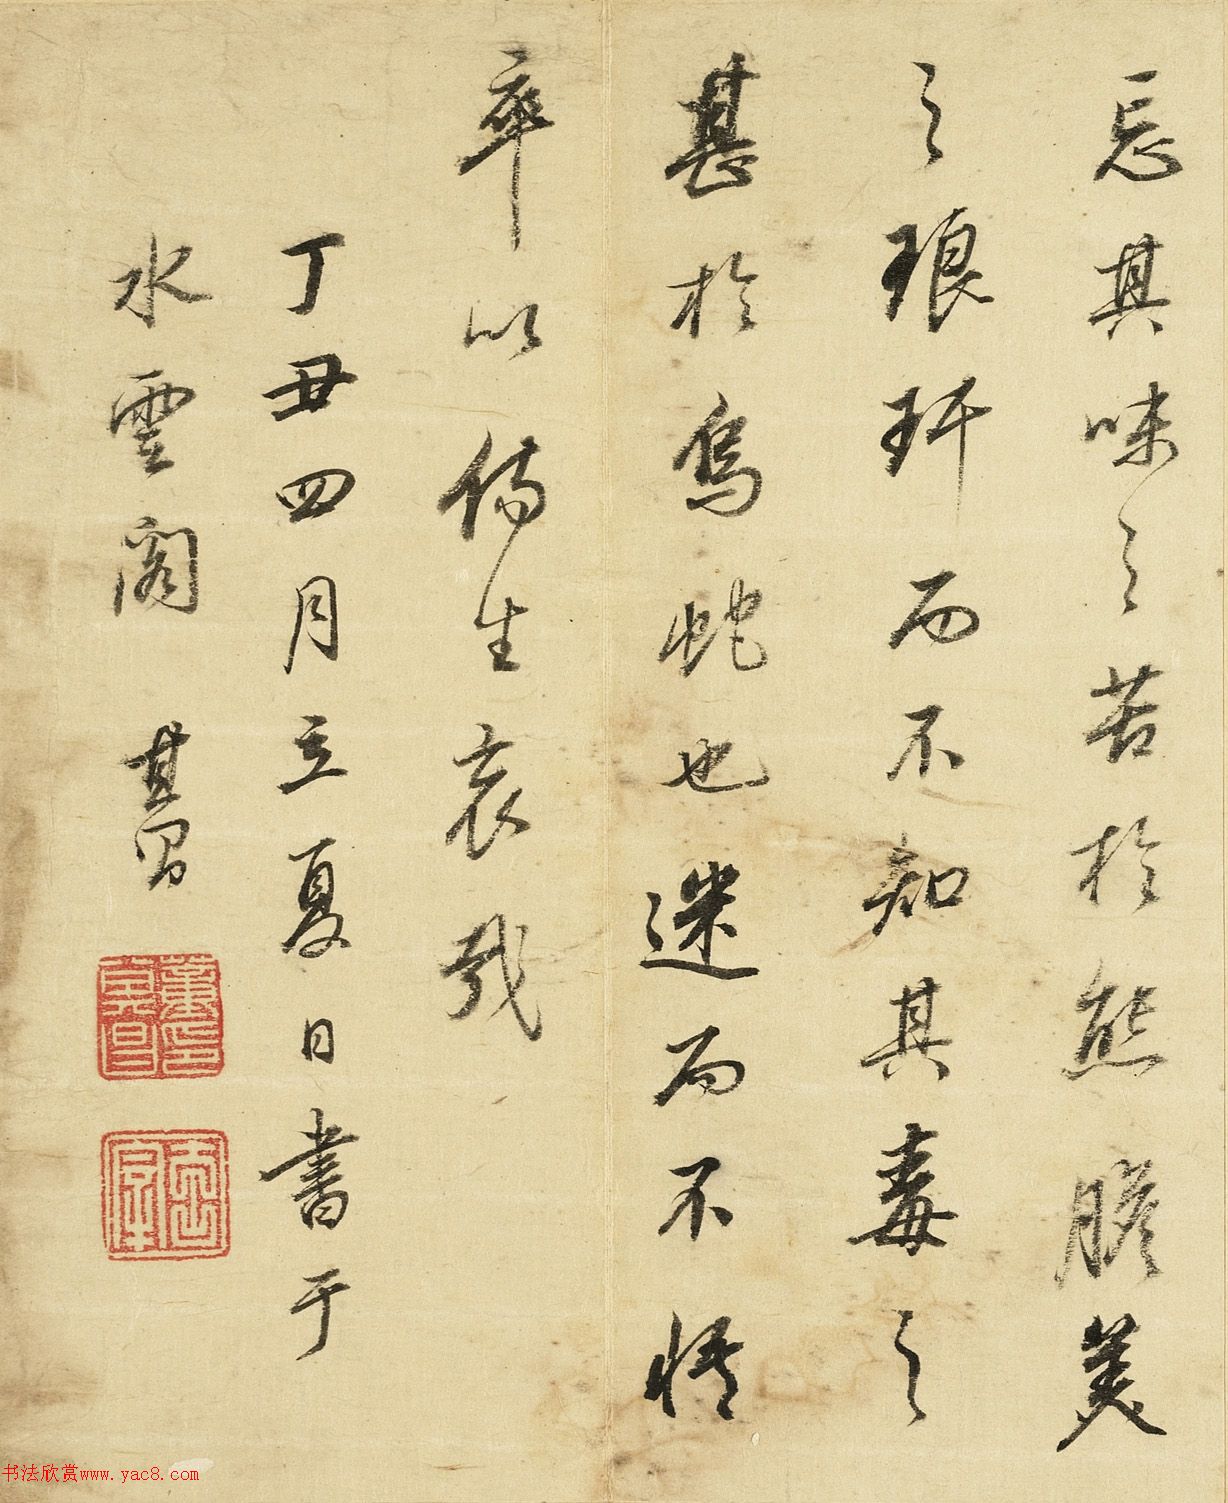 忘其味之苦於熊膽美
之琅玕而不知其毒之
甚於烏蛇也迷而不悟
率以傷生哀哉
丁丑四月立夏日書于
水雲閣 其昌
董其昌印
书法欣赏www.yac8.com